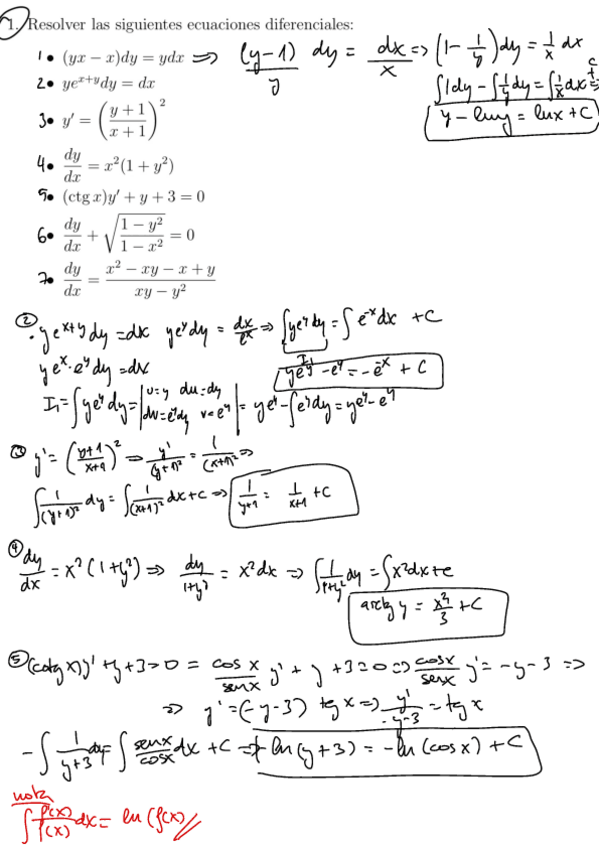 1. Resolver las siguientes ecuaciones diferenciales:
1• (yx − x)dy = ydx ⇒ (y-1)/y dy = dx/x ⇒ (1 - 1/y)dy = 1/x dx
∫1dy - ∫1/y dy = ∫1/x dx + C ⇒
y - ln y = ln x + C
2• ye^{x+y}dy = dx
3• y' = ((y+1)/(x+1))^2
4• dy/dx = x^2(1 + y^2)
5• (ctg x)y' + y + 3 = 0
6• dy/dx + √((1 − y^2)/(1 − x^2)) = 0
7• dy/dx = (x^2 − xy − x + y)/(xy − y^2)
② · y e^{x+y} dy = dx   y e^y dy = dx/e^x ⇒ ∫y e^y dy = ∫e^{-x} dx + C
y e^x · e^y dy = dx   I_1   y e^y - e^y = -e^{-x} + C
I_1 = ∫y e^y dy = | u=y du=dy dv=e^y dy v=e^y | = y e^y - ∫e^y dy = y e^y - e^y
③ y' = ((y+1)/(x+1))^2 ⇒ y'/(y+1)^2 = 1/(x+1)^2 ⇒
∫1/(y+1)^2 dy = ∫1/(x+1)^2 dx + C ⇒ 1/(y+1) = 1/(x+1) + C
④ dy/dx = x^2(1+y^2) ⇒ dy/(1+y^2) = x^2 dx ⇒ ∫1/(1+y^2) dy = ∫x^2 dx + c
arctg y = x^3/3 + C
⑤ (cotg x)y' + y + 3 = 0 = cos x/sen x y' + y + 3 = 0 ⇒ cos x/sen x y' = -y-3 ⇒
⇒ y' = (-y-3) tg x ⇒ y'/(-y-3) = tg x
-∫1/(y+3) dy = ∫sen x/cos x dx + C ⇒ -ln(y+3) = -ln(cos x) + C
nota
∫f'(x)/f(x) dx = ln(f(x))